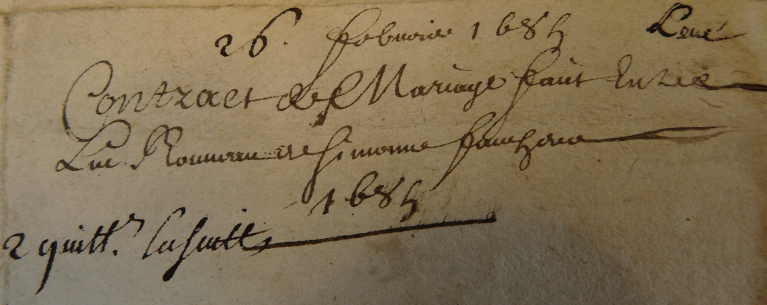 26. febvrier 1685 Levé
Contract de Mariage faict Entre
Luc Rouueau et Simonne
1685
2 quitt. ensuitte